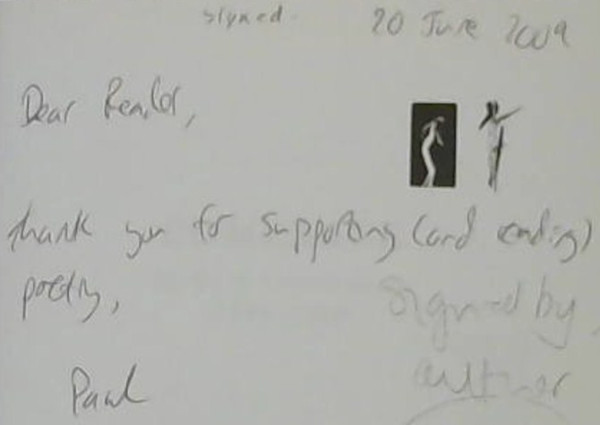 signed.
20 June 2009
Dear Reader,
thank you for supporting (and reading)
poetry,
Signed by
author
Paul